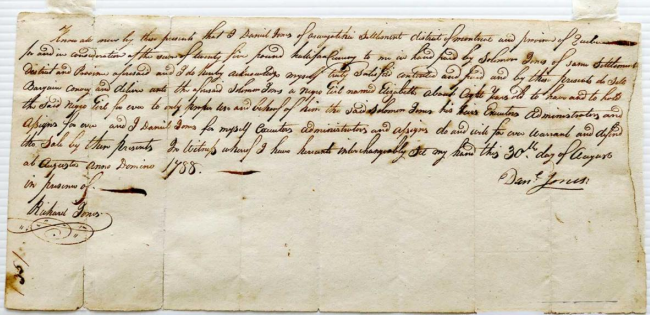 Know all men by these presents that I Daniel Jones of Settlement district of and province of Quebec
for and in consideration of the sum of twenty five pound Halifax Curency to me in hand paid by Solomon Jones of same Settlement
District and Province aforesaid and I do hereby acknowledge myself fully Satisfied contented and paid and by these presents do Sale
Bargain Convey and Deliver unto the aforesaid Solomon Jones a Negro Girl named Elizabeth About Years to have and to hold
the Said Negro Girl for ever to only proper use and behoof of him the Said Solomon Jones his heirs Executors Administrators and
Assigns for ever and I Daniel Jones for myself Executors administrators and assigns do and will for ever Warrant and defend
the Sale by these Presents In Witness whereof I have hereunto interchangeably Set my hand this 30th day of August
at Augusta Anno Domini 1788.
in presence of
Danl. Jones
Richard Jones